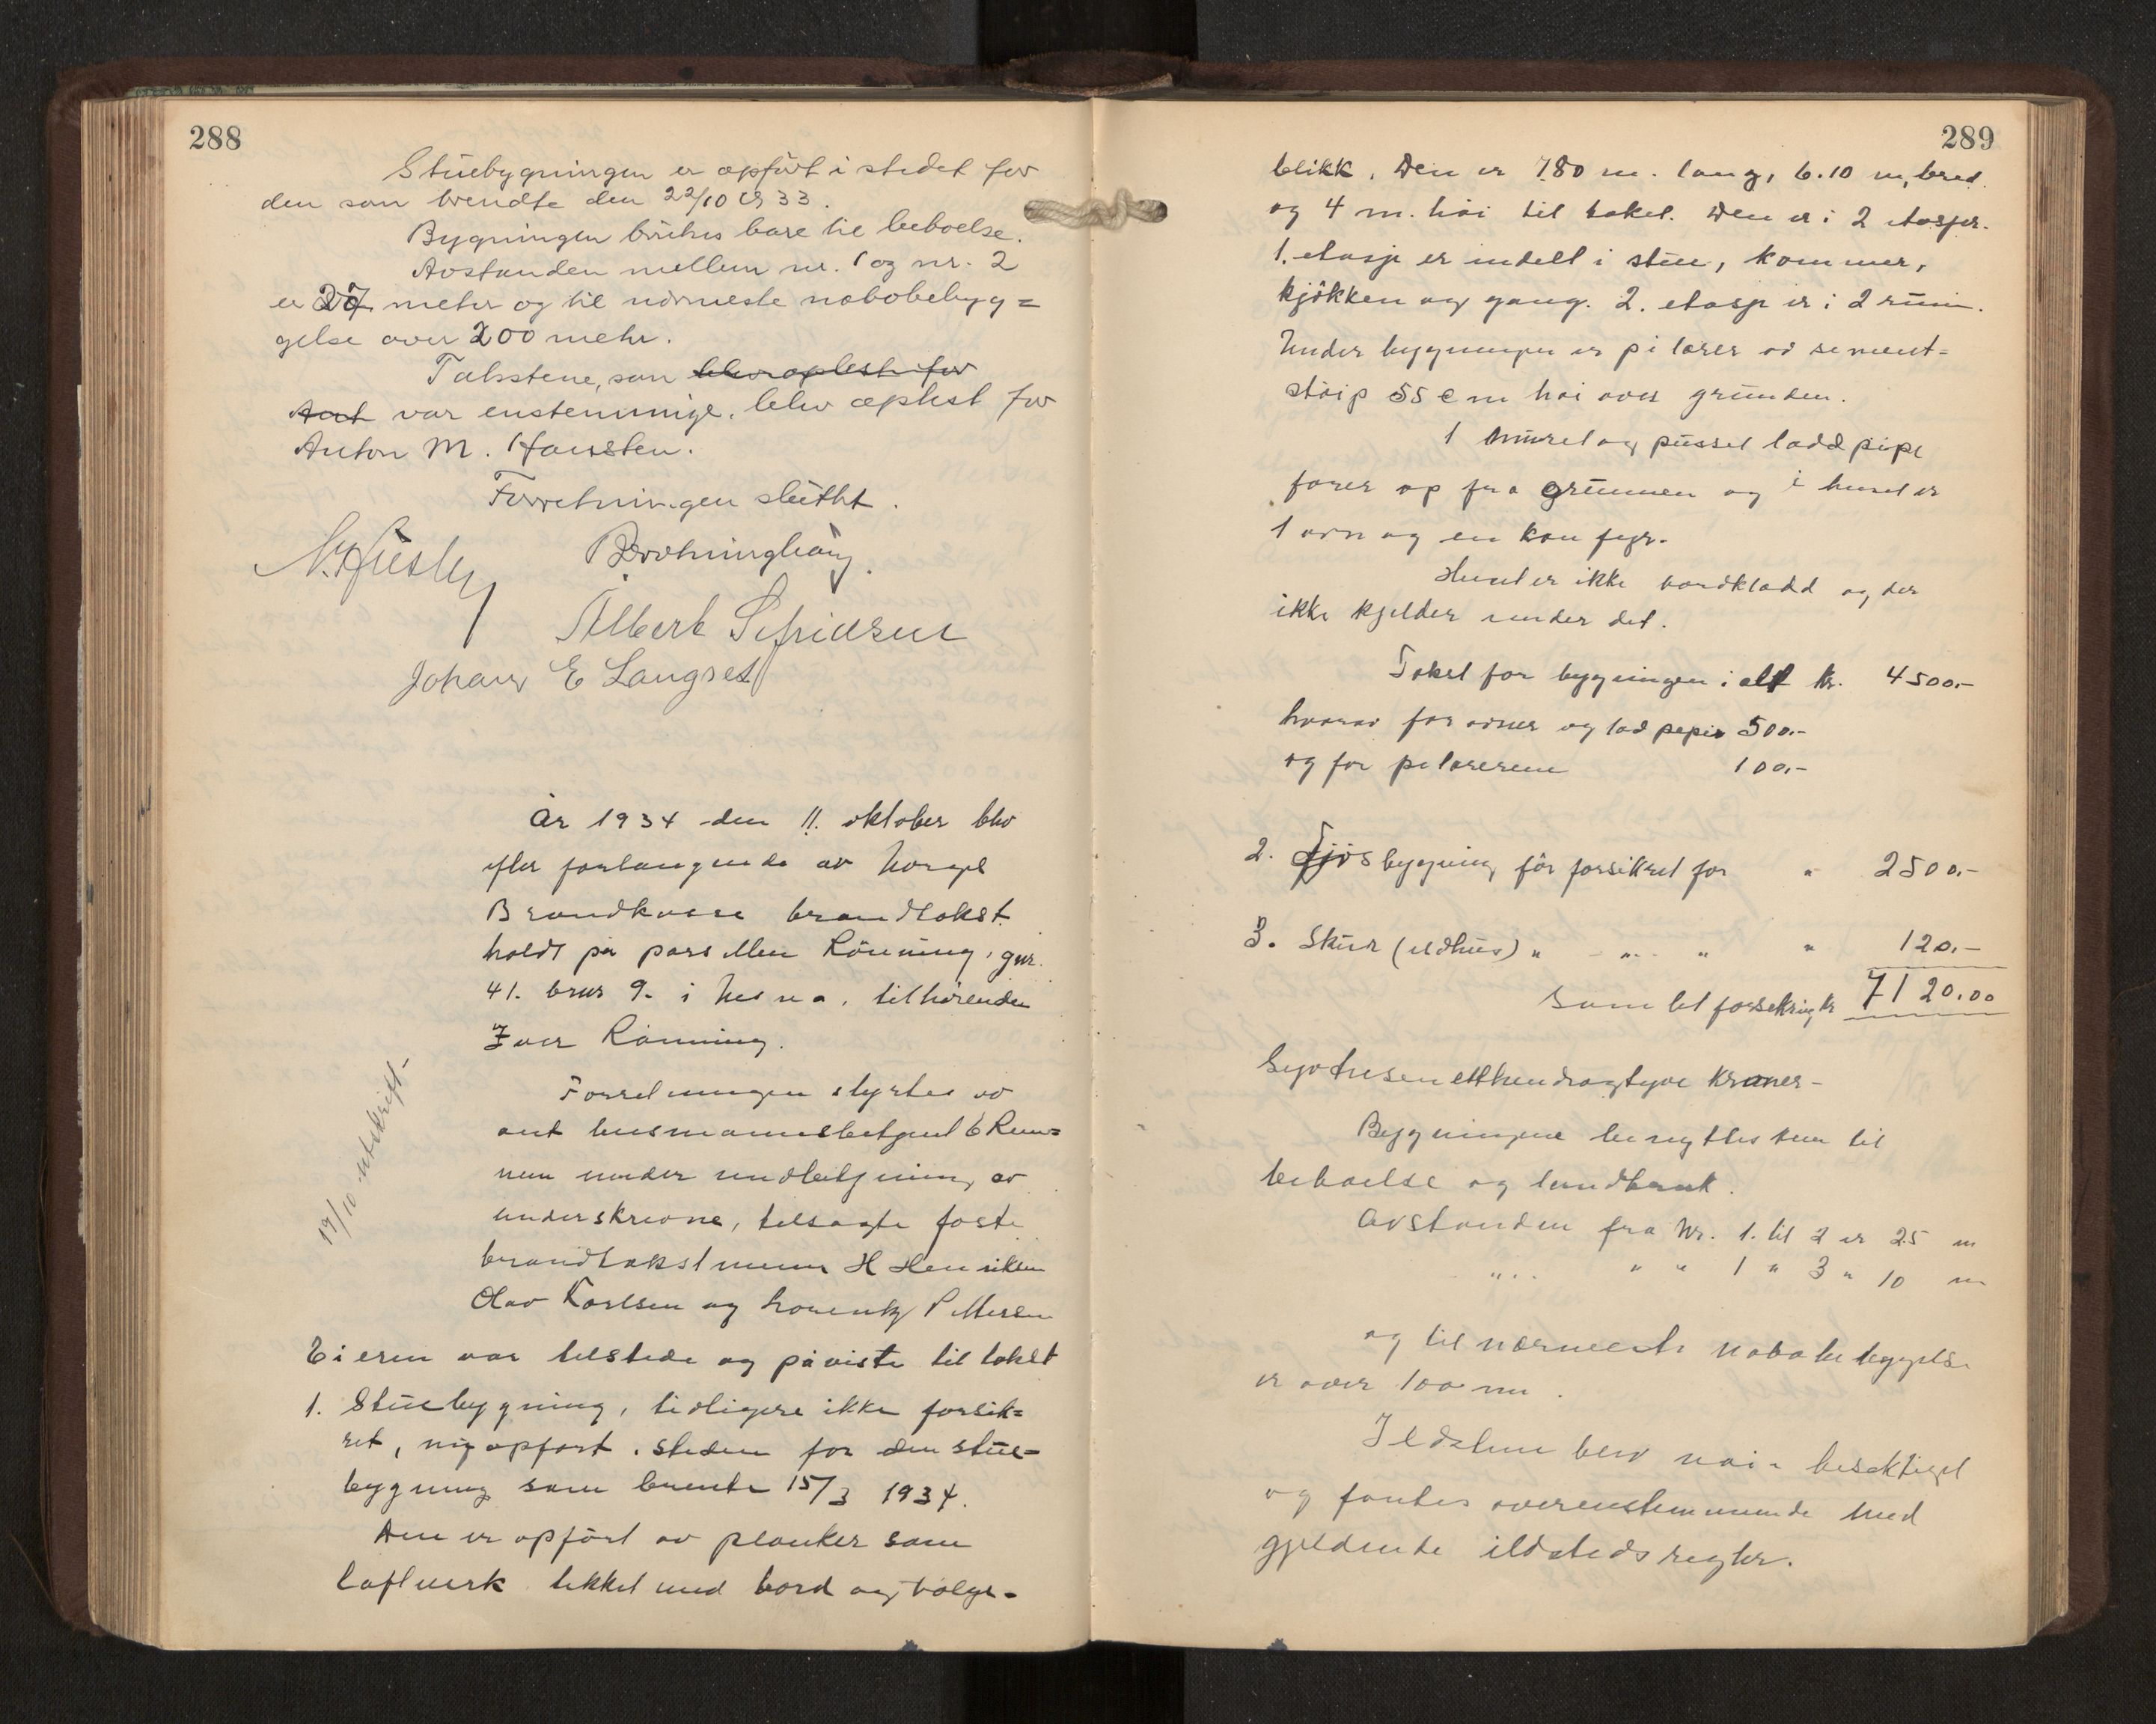 288
Stuebygningen er opført i stedet for
den som brendte den 22/10 19 33.
Bygningen brukes bare til beboelse.
Avstanden mellem nr. 1 og nr. 2
er 27 meter og til nærmeste nabobebyg=
gelse over 200 meter.
Takstene, som blev oplest for
Ant var enstemmige, blev oplest for
Anton M. Hansten.
Forretningen sluttet.
N. Husby
Albert Sefriasen
Johans E Langset
År 1934 den 11. oktober blev
efter forlangende av Norges
Brandkasse brandtakst
holdt på parsellen Rönning, gnr.
41. brnr 9. i Nesna, tilhørende
Iver Rönning.
Forretningen styrtes av
ant lensmannsbetjent E Rem=
men under medbetjening av
underskrevne, tilsagte faste
brandtakstmenn H Henriksen
Olav Karlsen og Lorentz Pettersen
Eieren var tilstede og påviste til takst
1. Stuebygning, tidligere ikke forsik=
ret, nyopført i steden for den stue=
bygning som brente 15/3 1934.
Den er opført av planker som
laftverk tekket med bord og bølge=
19/10 utskrift-
289
blikk. Den er 7.80 m. lang, 6.10 m, bred
og 4 m. høi til taket. Den er i 2 etasjer.
1. etasje er indelt i stue, kammer,
kjökken og gang. 2. etasje er i 2 rum.
Under bygningen er pilarer av sement=
støip 55 cm høi over grunden.
1 muret og pusset ladd pipe
fører op fra grunnen og i huset er
1 ovn og en komfyr.
Huset er ikke bordkladd og der
ikke kjelder under det.
Takst for bygningen i alt kr. 4500.-
hvorav for ovner og lad pepir 500.-
og for pilarerene 100.-
2. Fjösbygning för forsikret for " 2500.-
3. Skur (eldhus) " " " " 120.-
Samlet forsikring kr 7120.00
Syvtusenetthundreogtyve kroner-
Bygningene benyttes kun til
beboelse og landbruk.
Avstanden fra Nr. 1. til 2 er 25 m
" " " 1 " 3 " 10 m
og til nærmeste nabobebyggelse
er over 100 m.
Ildstene blev nøie besiktiget
og fantes overenstemmende med
gjeldende ildstedsregler.